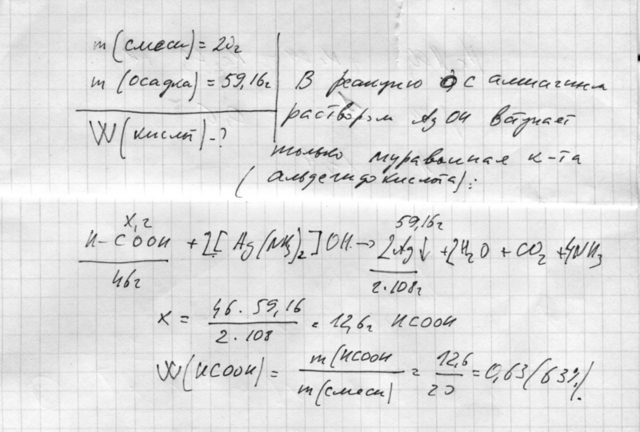 m(смеси) = 20г
m(осадка) = 59,16г
W(кислот) - ?
В реакцию с аммиачным
раствором AgOH вступает
только муравьиная к-та
(альдегидокислота):
x, г 59,16г
H-COOH + 2[Ag(NH3)2]OH → 2Ag↓ + 2H2O + CO2 + 4NH3
46г 2·108г
x = 46 · 59,16 / 2 · 108 = 12,6г HCOOH
W(HCOOH) = m(HCOOH / m(смеси) = 12,6 / 20 = 0,63 (63%)